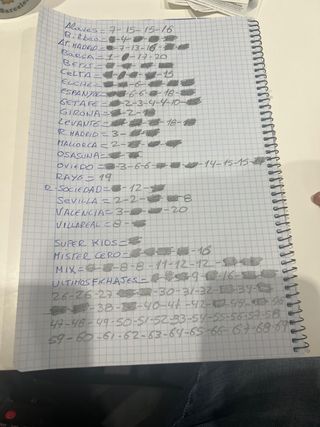 ALAVES = 7-15-15-16
BILBAO = -4-
AT. MADRID = -7-13-16-
BARÇA = 1- -17-20
BETIS =
CELTA = -15
ELCHE = -6-
ESPANYOL = -6-6-18-
GETAFE = -2-3-4-4-10-
GIRONA = -2-
LEVANTE = -18-
R. MADRID = 3-
MALLORCA = 2-
OSASUNA =
OVIEDO = -3-6-6- -14-15-15-
RAYO = 19
R. SOCIEDAD = -12-
SEVILLA = 2-2- -8
VALENCIA = 3- -20
VILLAREAL = 8-
SUPER KIDS =
MISTER CERO = -18
MIX = -8-8-11-12-12-
ULTIMOS FICHAJES = -9- -16-
26-26-27- -30-31-32- -34-
-38- -40-41-42- -45-
47-48-49-50-51-52-53-54-55-56-57-58
59-60-61-62-63-64-65-66-67-68-69